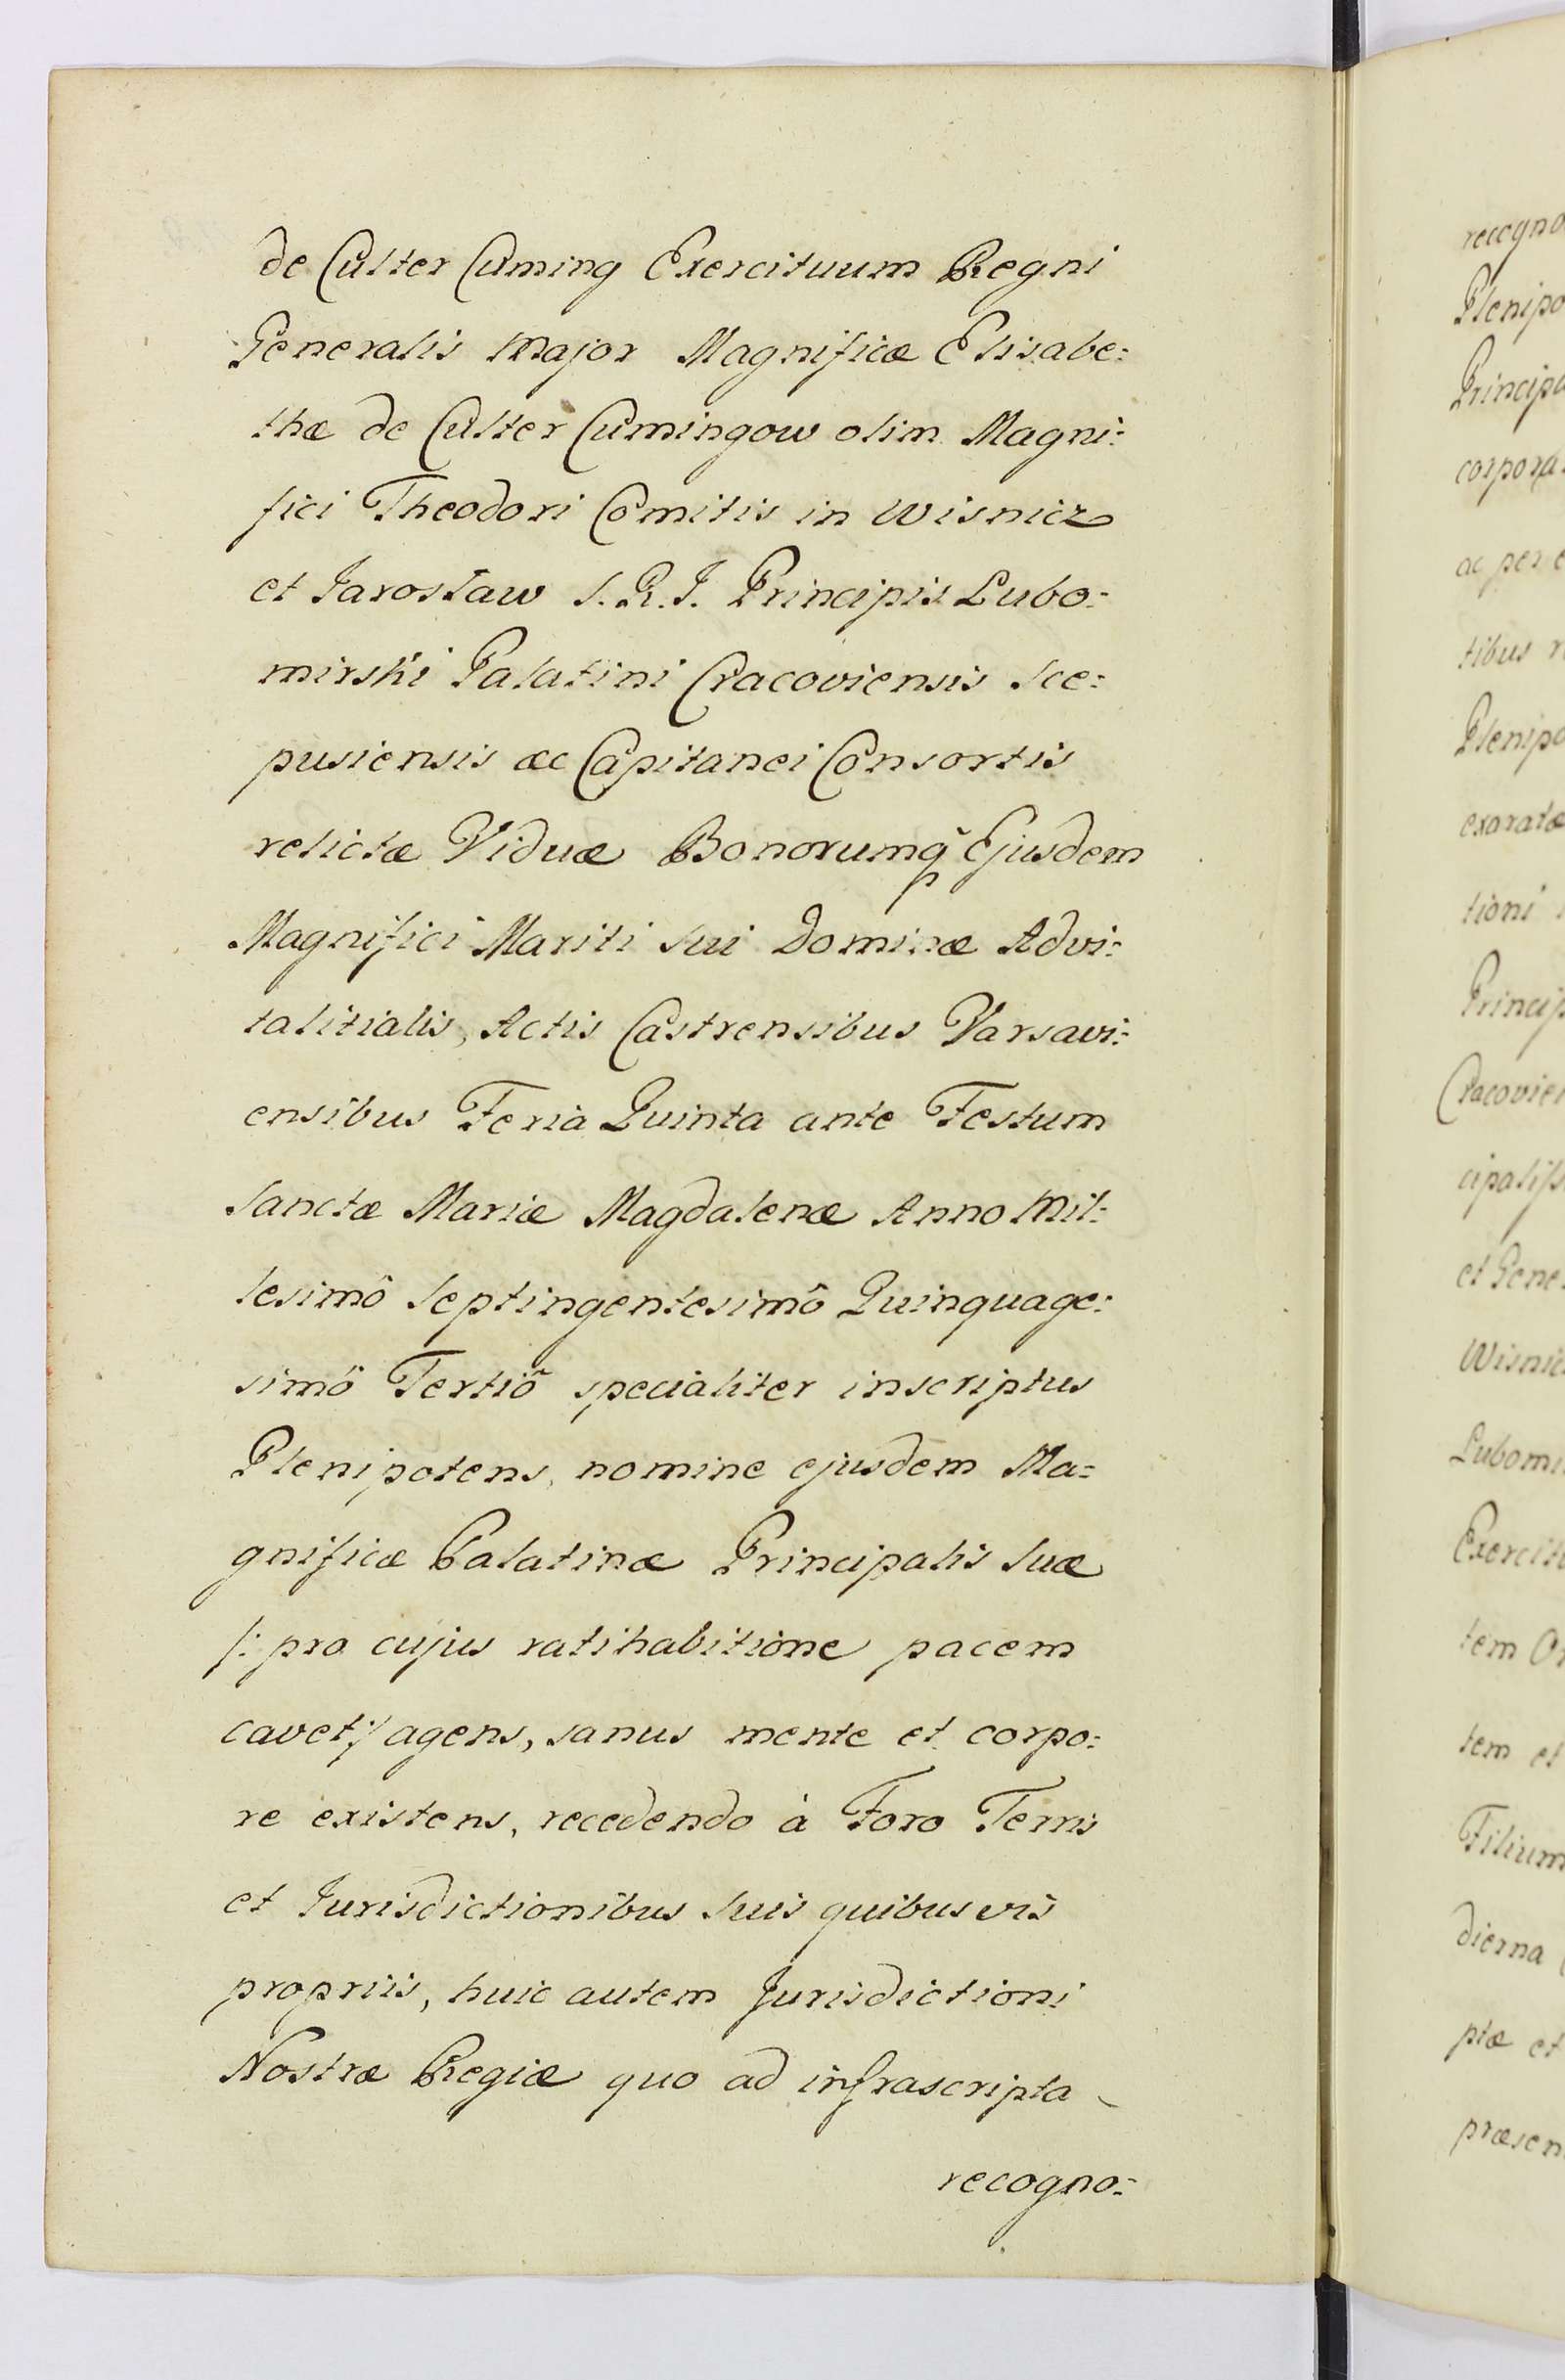 de Culter Cuming Exercituum Regni
Generalis Major Magnificæ Elisabe:
thæ de Culter Cumingow olim Magni:
fici Theodori Comitis in Wisnicz
et Jarosław S. R. I. Principis Lubo:
mirski Palatini Cracoviensis Sce:
pusiensis æc Capitanei Consortis
relictæ Viduæ Bonorumq̃ Ejusdem
Magnifici Mariti Sui Dominæ Advi:
talitialis, Actis Castrensibus Varsavi:
ensibus Feria Quinta ante Festum
Sanctæ Mariæ Magdalenæ Anno Mil:
lesimô Septingentesimô Quinquage:
simô Tertiô specialiter inscriptus
Plenipotens, nomine ejusdem Ma=
gnificæ Palatinæ Principalis Suæ
/: pro cujus ratihabitione pacem
cavet :/ agens, sanus mente et corpo:
re existens, recedendo à Foro Terris
et Jurisdictionibus Suis quibusvis
propriis, huic autem Jurisdictioni
Nostræ Regiæ quo ad infrascripta
recogno:
recogno
Plenipo
Principa
corpora
ac per e
tibus r
Plenipo
exaratæ
tioni
Princip
Cracovien
cipaliss
et Gene
Wisnic
Lubomi
Exercit
tem O
tem et
Filium
dierna
ptæ et
præsen